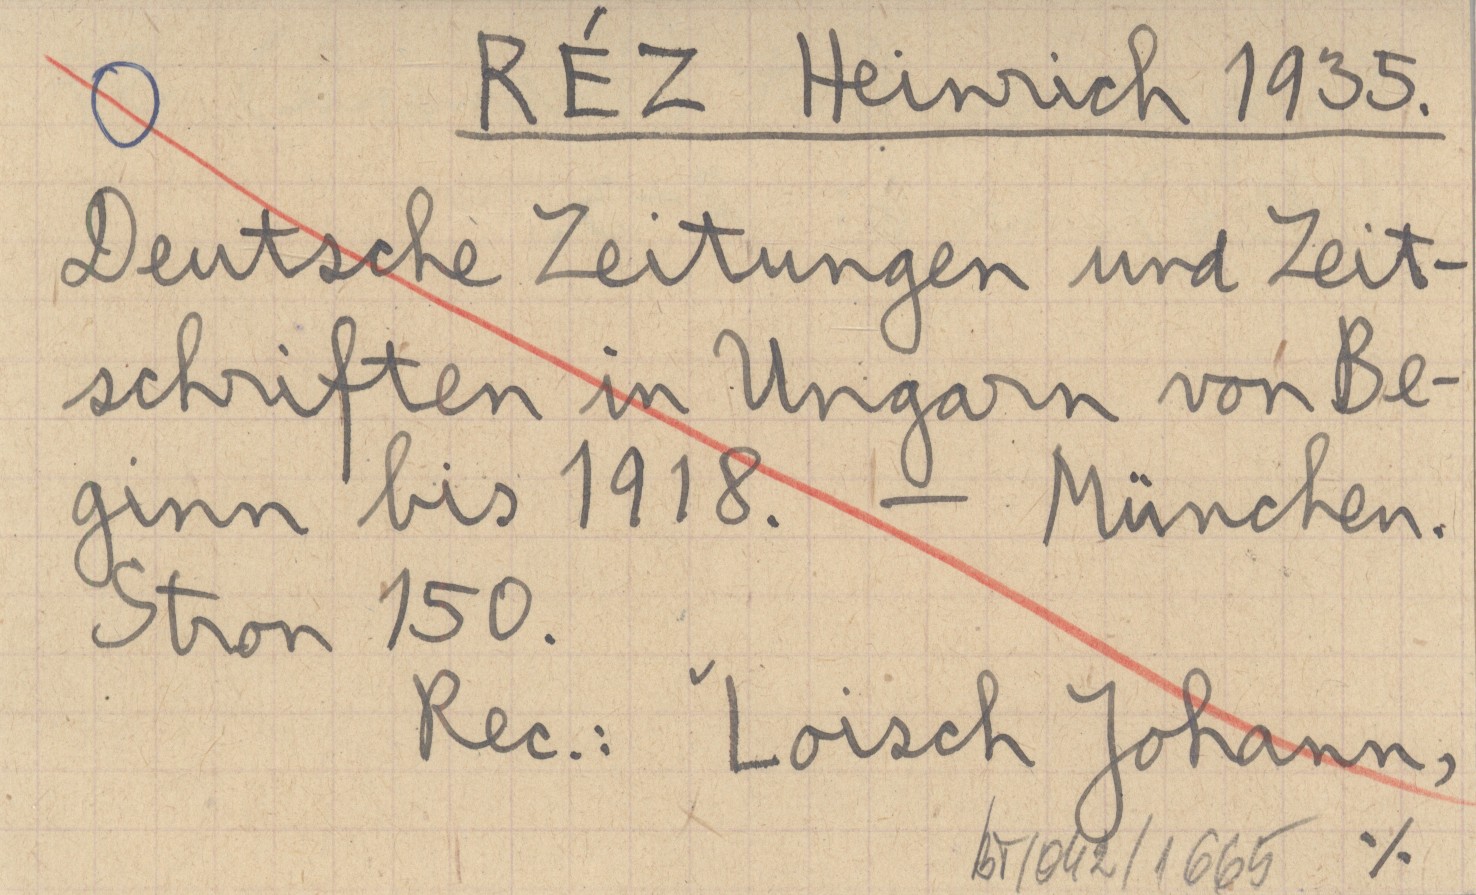 RÉZ Heinrich 1935.
Deutsche Zeitungen und Zeit-
schriften in Ungarn von Be-
ginn bis 1918. — München.
Stron 150.
Rec.: Loisch Johann,
bT/042/1665 ./.